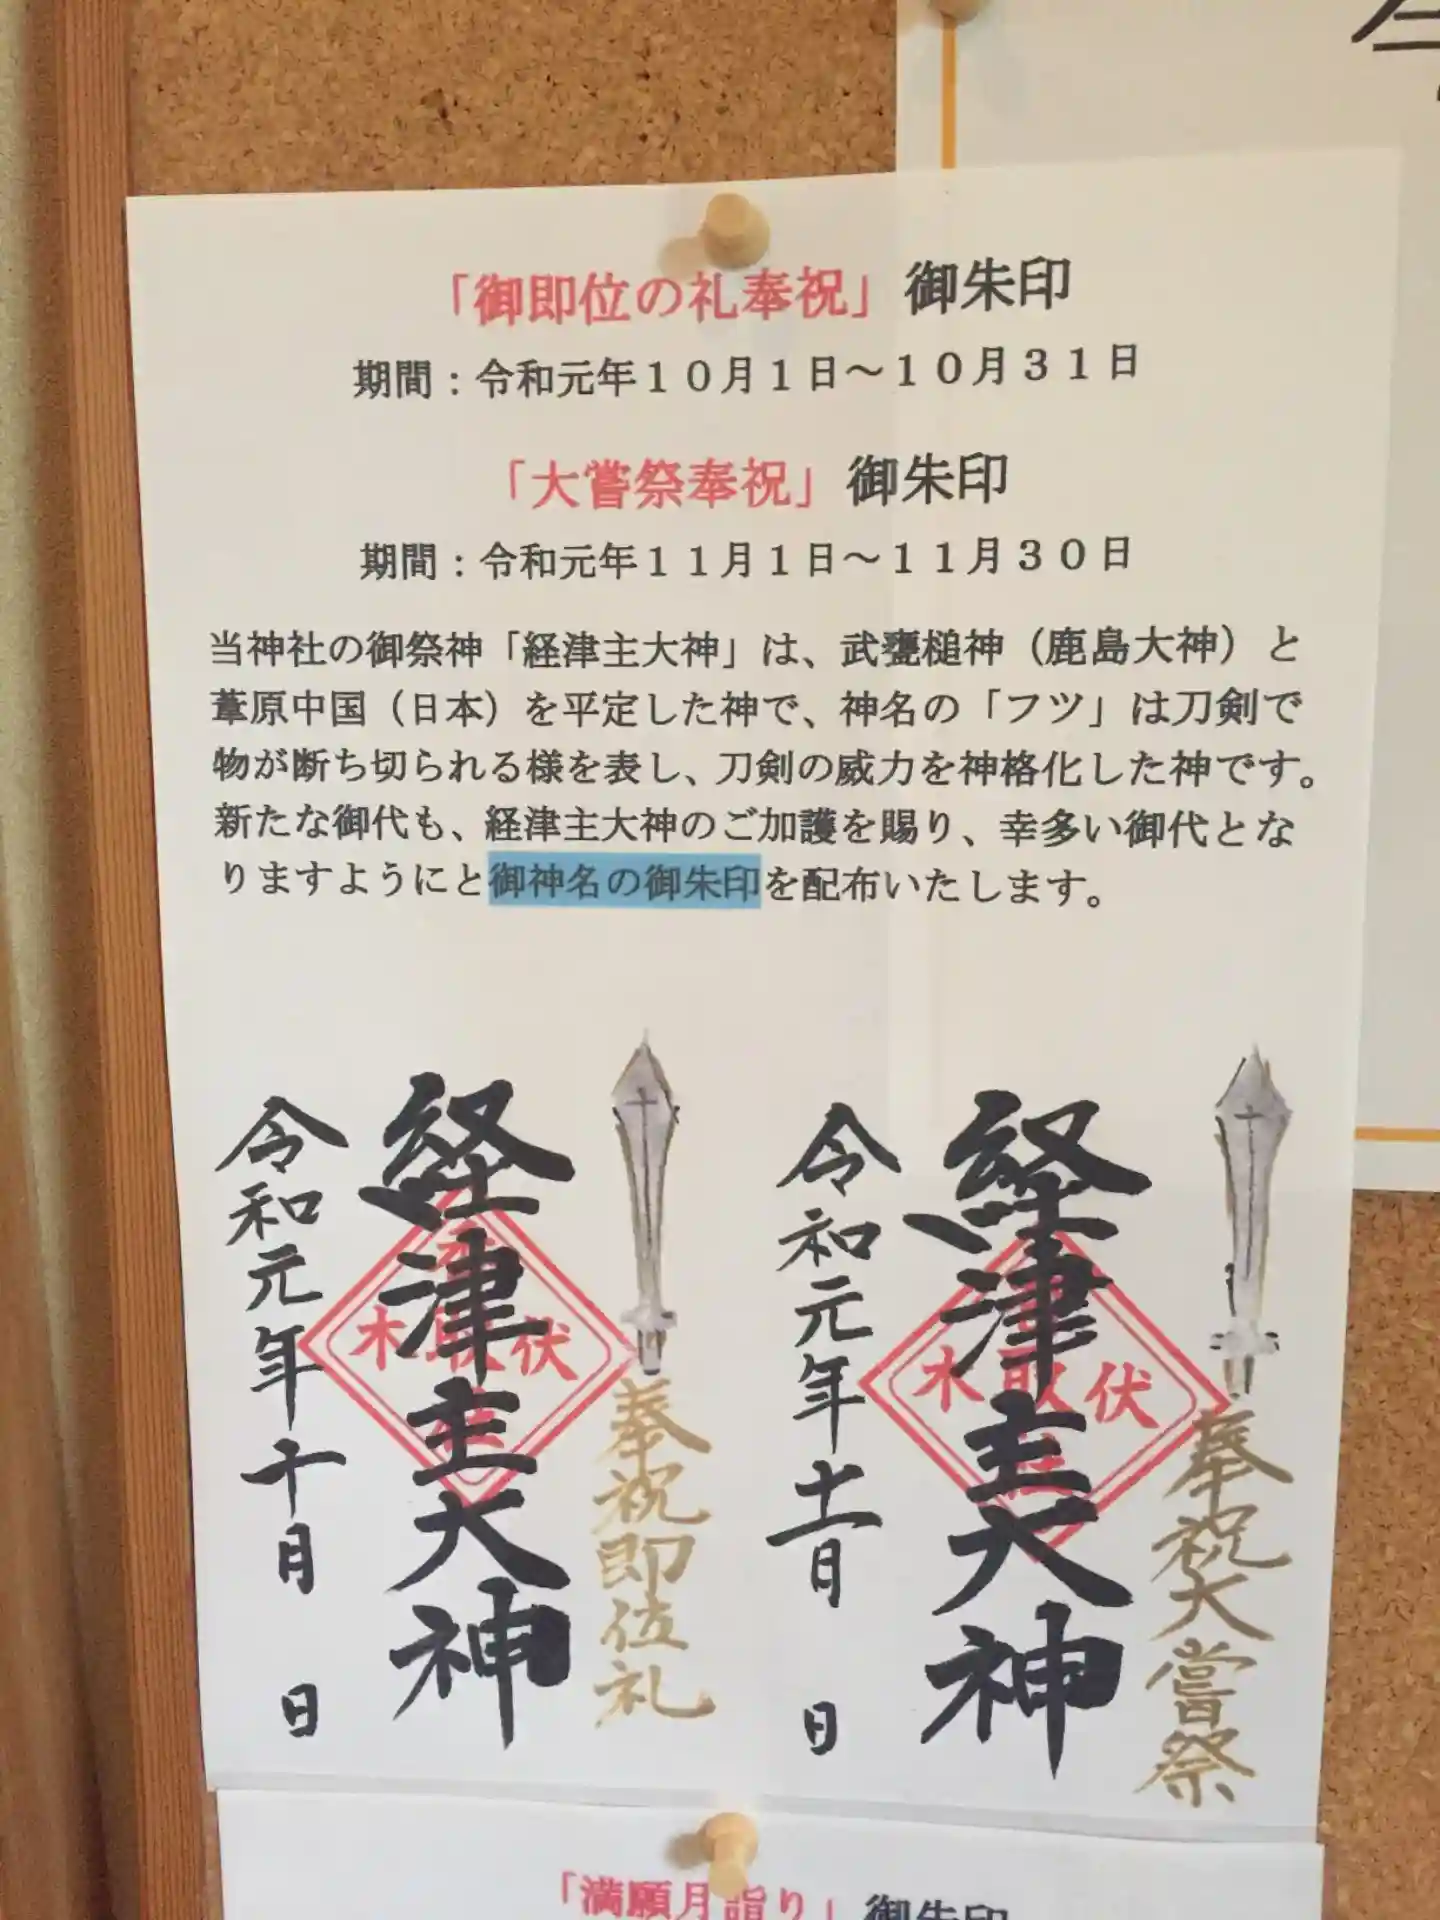 「御即位の礼奉祝」御朱印
期間：令和元年１０月１日～１０月３１日
「大嘗祭奉祝」御朱印
期間：令和元年１１月１日～１１月３０日
当神社の御祭神「経津主大神」は、武甕槌神（鹿島大神）と
葦原中国（日本）を平定した神で、神名の「フツ」は刀剣で
物が断ち切られる様を表し、刀剣の威力を神格化した神です。
新たな御代も、経津主大神のご加護を賜り、幸多い御代とな
りますようにと御神名の御朱印を配布いたします。
奉祝即位礼
経津主大神
令和元年十月 日
奉祝大嘗祭
経津主大神
令和元年十一月 日
「満願月詣り」御朱印